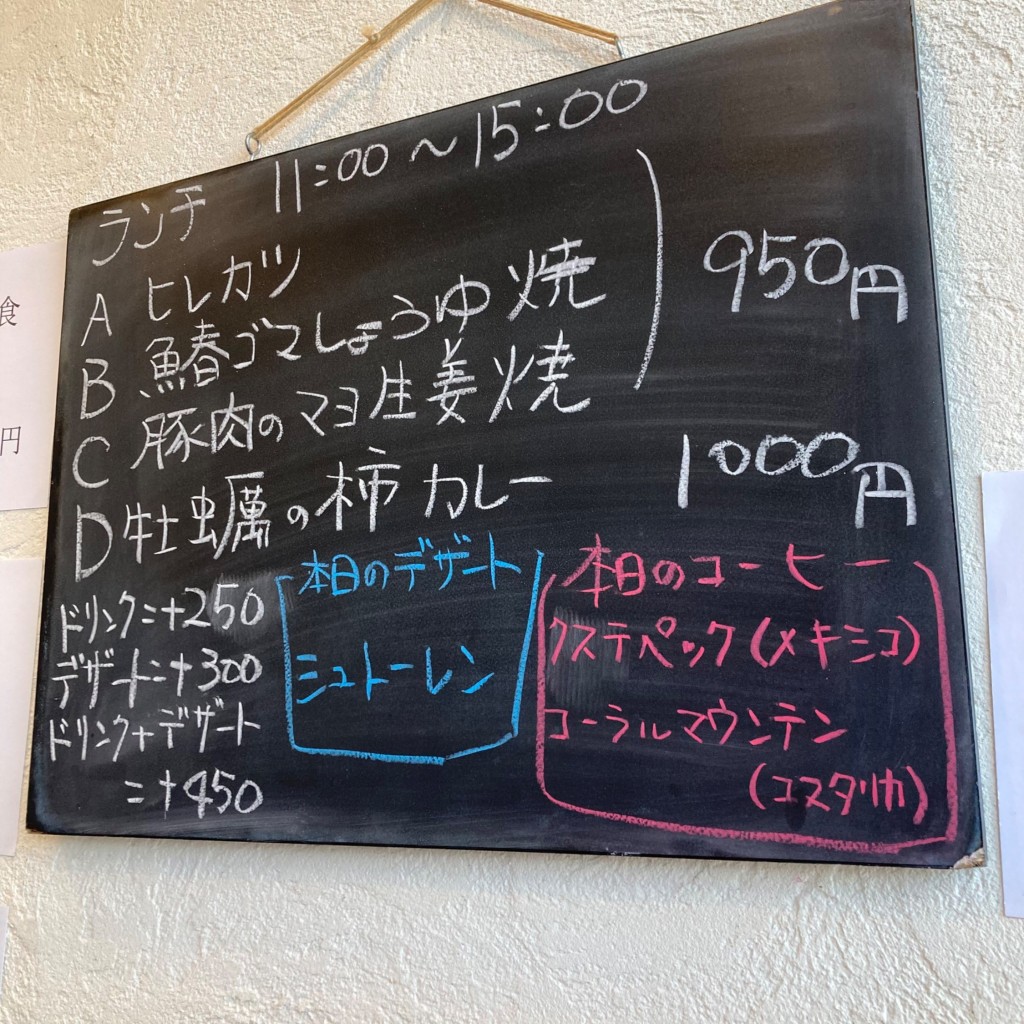 ランチ 11:00 ~ 15:00
A ヒレカツ
B 鰆ゴマしょうゆ焼
C 豚肉のマヨ生姜焼
950円
D 牡蠣の柿カレー 1000円
ドリンク=+250
デザート=+300
ドリンク+デザート
=+450
本日のデザート
シュトーレン
本日のコーヒー
クステペック(メキシコ)
コーラルマウンテン
(コスタリカ)
食
円